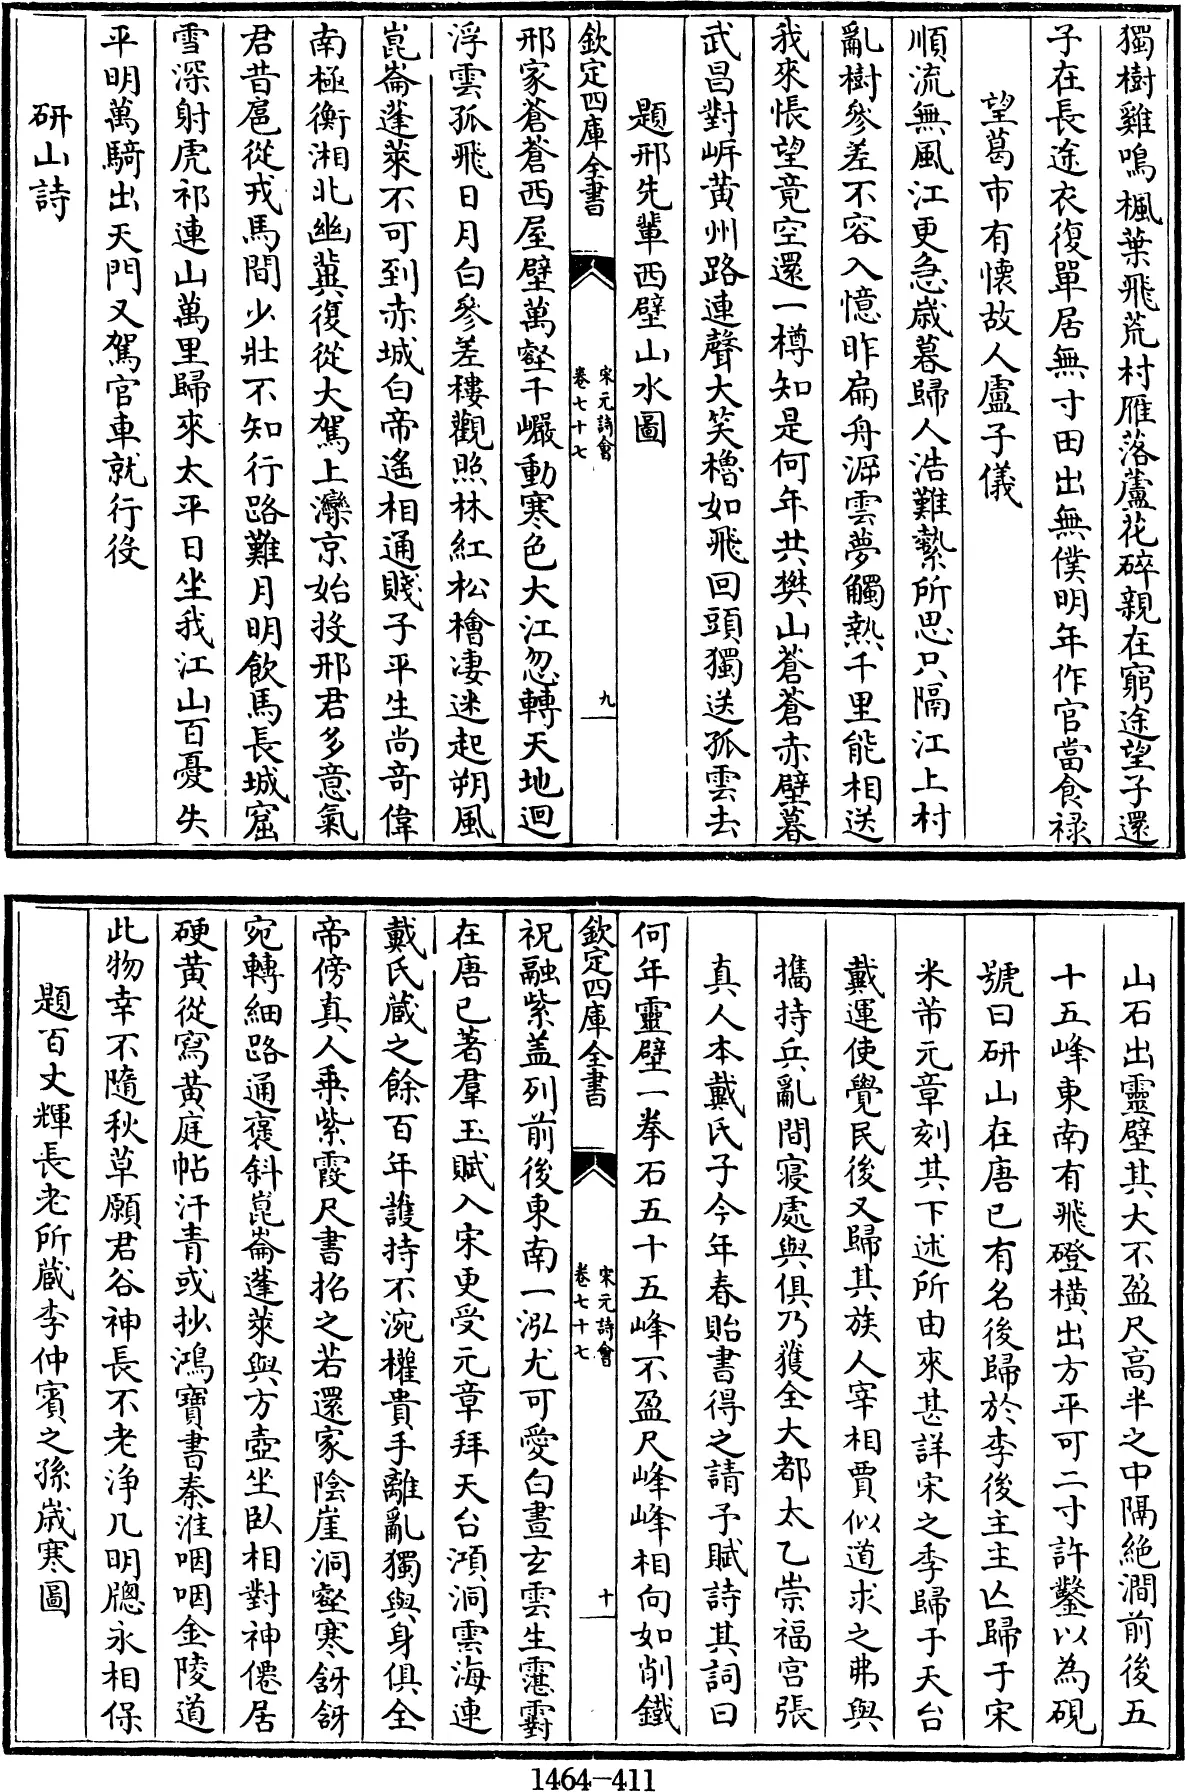 獨樹雞鳴楓葉飛荒村雁落蘆花碎親在窮途望子還
子在長途衣復單居無寸田出無僕明年作官當食祿
望葛市有懷故人盧子儀
順流無風江更急歲暮歸人浩難縶所思只隔江上村
亂樹參差不容入憶昨扁舟泝雲夢觸熱千里能相送
我來悵望竟空還一樽知是何年共樊山蒼蒼赤壁暮
武昌對㟁黃州路連聲大笑櫓如飛回頭獨送孤雲去
題邢先輩西壁山水圖
欽定四庫全書
宋元詩會
卷七十七
九
邢家蒼蒼西屋壁萬壑千巖動寒色大江忽轉天地迴
浮雲孤飛日月白參差樓觀照林紅松檜凄迷起朔風
崑崙蓬萊不可到赤城白帝遙相通賤子平生尚竒偉
南極衡湘北幽冀復從大駕上灤京始投邢君多意氣
君昔扈從戎馬間少壯不知行路難月明飲馬長城窟
雪深射虎祁連山萬里歸來太平日坐我江山百憂失
平明萬騎出天門又駕官車就行役
研山詩
山石出靈壁其大不盈尺高半之中隔絶澗前後五
十五峰東南有飛磴橫出方平可二寸許鑿以為硯
號曰研山在唐已有名後歸於李後主主亡歸于宋
米芾元章刻其下述所由來甚詳宋之季歸于天台
戴運使覺民後又歸其族人宰相賈似道求之弗與
攜持兵亂間寢處與俱乃獲全大都太乙崇福宫張
真人本戴氏子今年春貽書得之請予賦詩其詞曰
何年靈壁一拳石五十五峰不盈尺峰峰相向如削鐵
欽定四庫全書
宋元詩會
卷七十七
十
祝融紫盖列前後東南一泓尤可愛白晝玄雲生霮䨴
在唐已著羣玉賦入宋更受元章拜天台澒洞雲海連
戴氏蔵之餘百年護持不涴權貴手離亂獨與身俱全
帝傍真人乘紫霞尺書招之若還家陰崖洞壑寒谺谺
宛轉細路通褒斜崑崙蓬萊與方壺坐臥相對神僊居
硬黃從寫黃庭帖汗青或抄鴻寶書秦淮咽咽金陵道
此物幸不隨秋草願君谷神長不老淨几明牕永相保
題百丈輝長老所蔵李仲賓之孫歲寒圖
1464-411